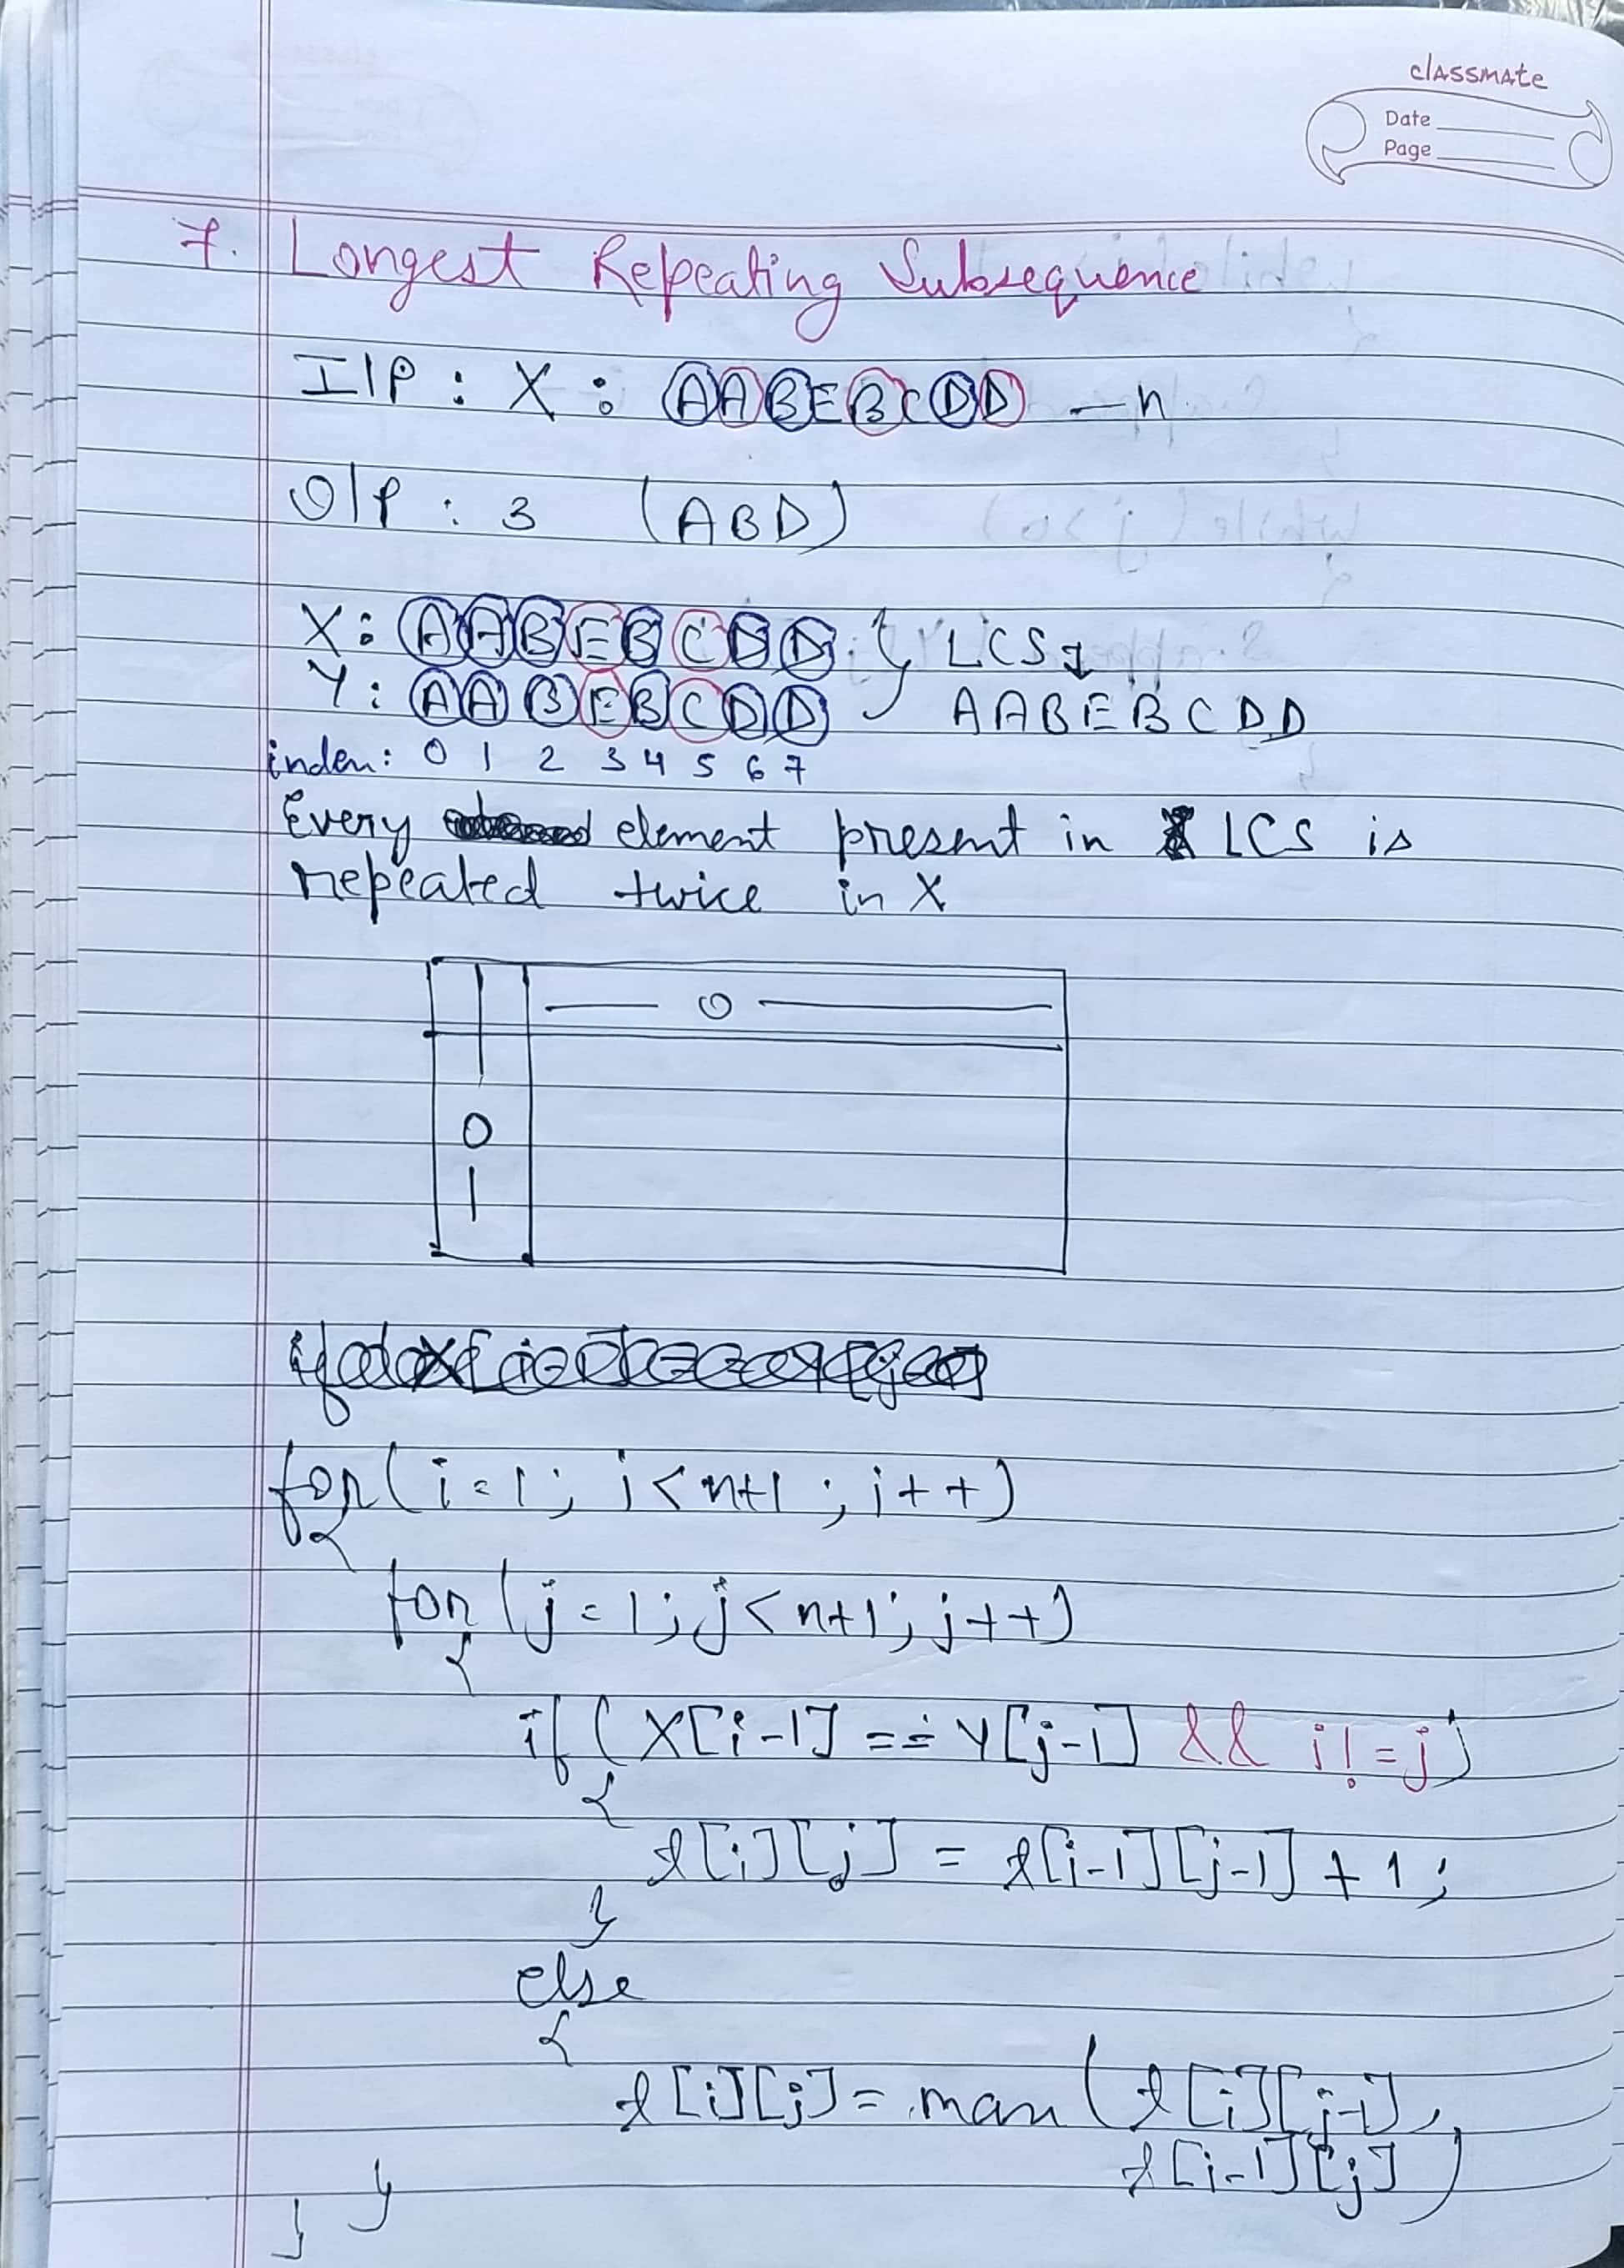 classmate
Date
Page
7. Longest Repeating Subsequence
I/P : X : AABEBCDD — n
O/P : 3 (ABD)
X: AABEBCDD } LCS ↓
Y: AABEBCDD AABEBCDD
index: 0 1 2 3 4 5 6 7
Every element present in LCS is
repeated twice in X
0
0
for(i=1; i<n+1; i++)
{
for(j=1; j<n+1; j++)
{
if(X[i-1] == Y[j-1] && i!=j)
{
t[i][j] = t[i-1][j-1] + 1;
}
else
{
t[i][j] = max(t[i][j-1],
t[i-1][j])
}
}